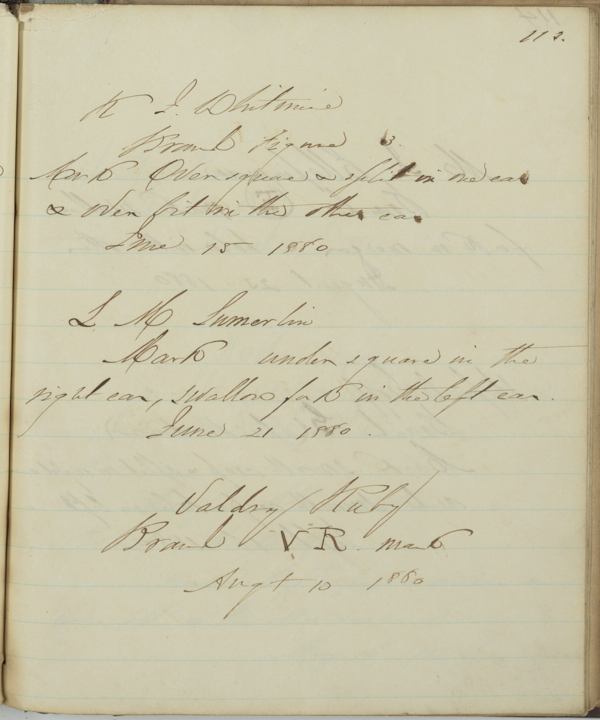 112.
K J. Whitmire
Brand Figure 3.
Mark Over square & split in one ear
& Over bit in the other ear
June 15 1880
L M Sumerlin
Mark under square in the
right ear, swallow fork in the left ear.
June 21 1880.
Valdry Ruby
Brand VR mark
Augt 10 1880